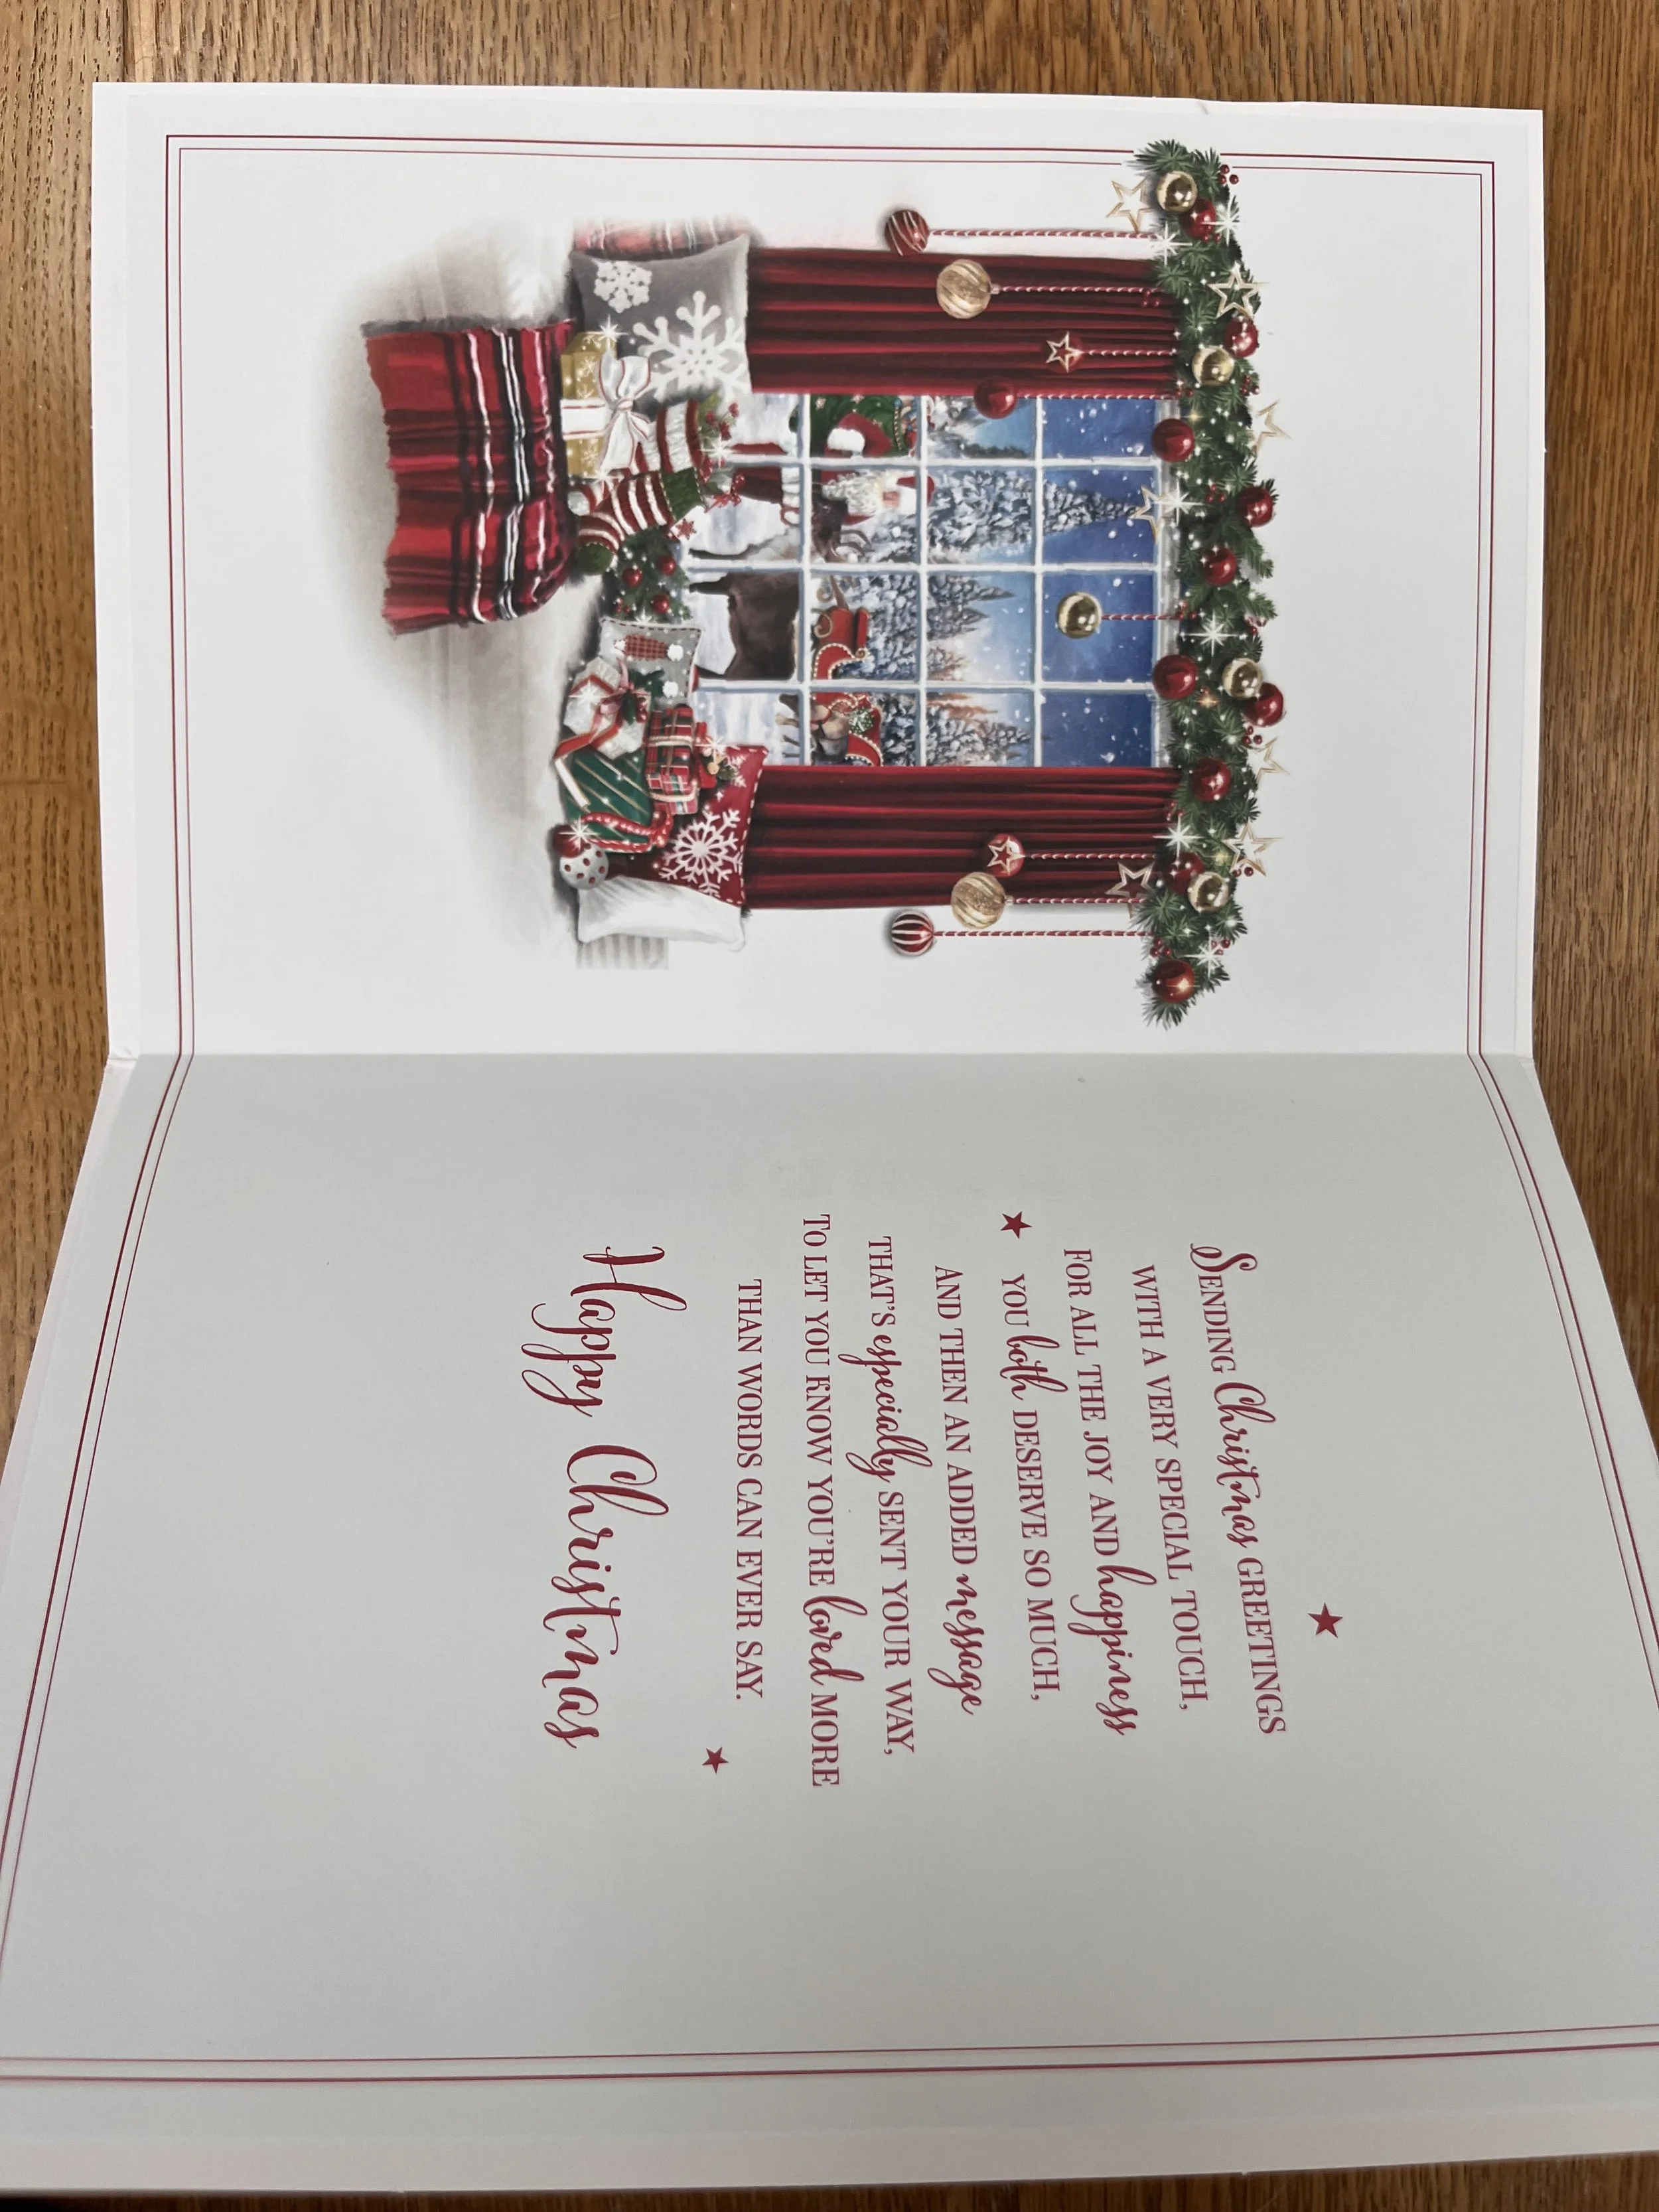 Sending Christmas greetings
with a very special touch,
For all the joy and happiness
you both deserve so much,
And then an added message
that's especially sent your way,
To let you know you're loved more
than words can ever say.
Happy Christmas